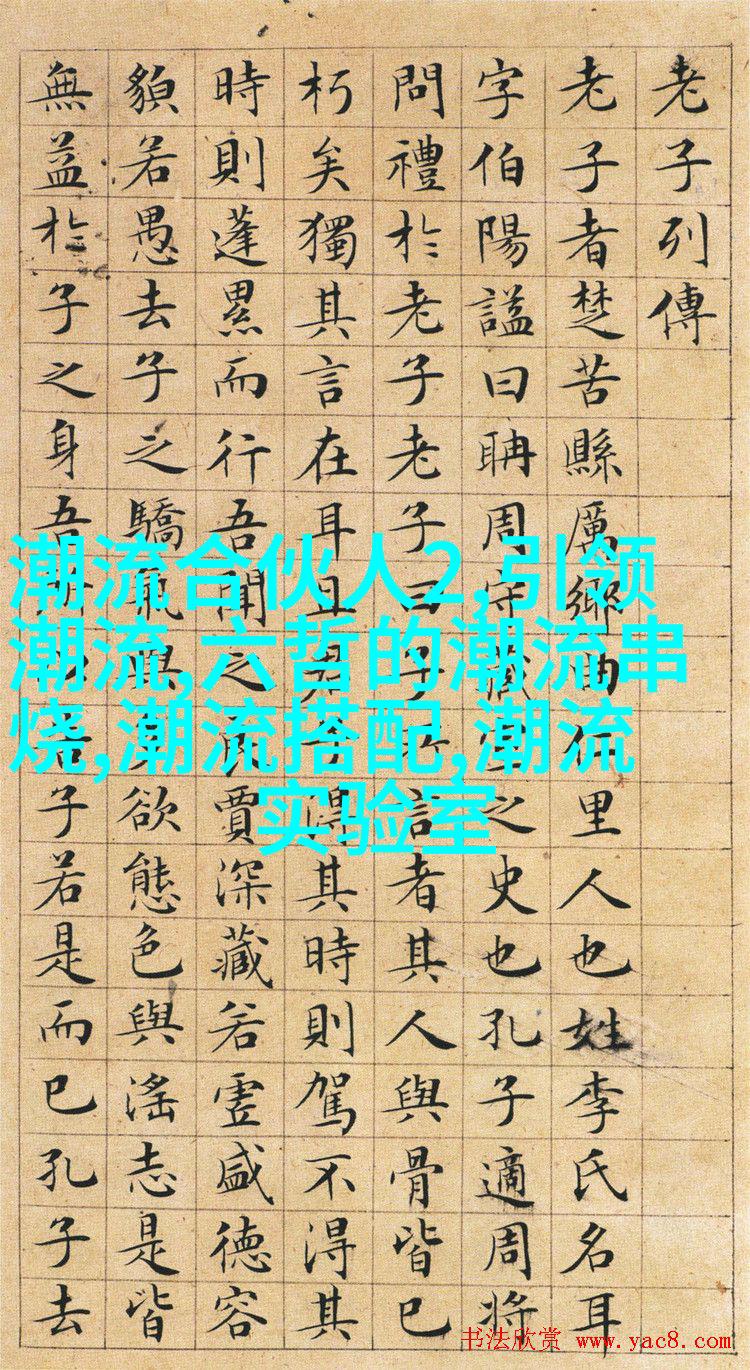 老子列傳
老子者楚苦縣厲鄉曲仁里人也姓李氏名耳
字伯陽謚曰聃周守藏室之史也孔子適周將
問禮於老子老子曰子所言者其人與骨皆已
朽矣獨其言在耳且君子得其時則駕不得其
時則蓬累而行吾聞之良賈深藏若虛盛德容
貌若愚去子之驕氣與多欲態色與淫志是皆
無益於子之身吾所以告子若是而已孔子去
潮流合伙人2,引领
潮流,六哲的潮流串
烧,潮流搭配,潮流
实验室
书法欣赏 www.yac8.com